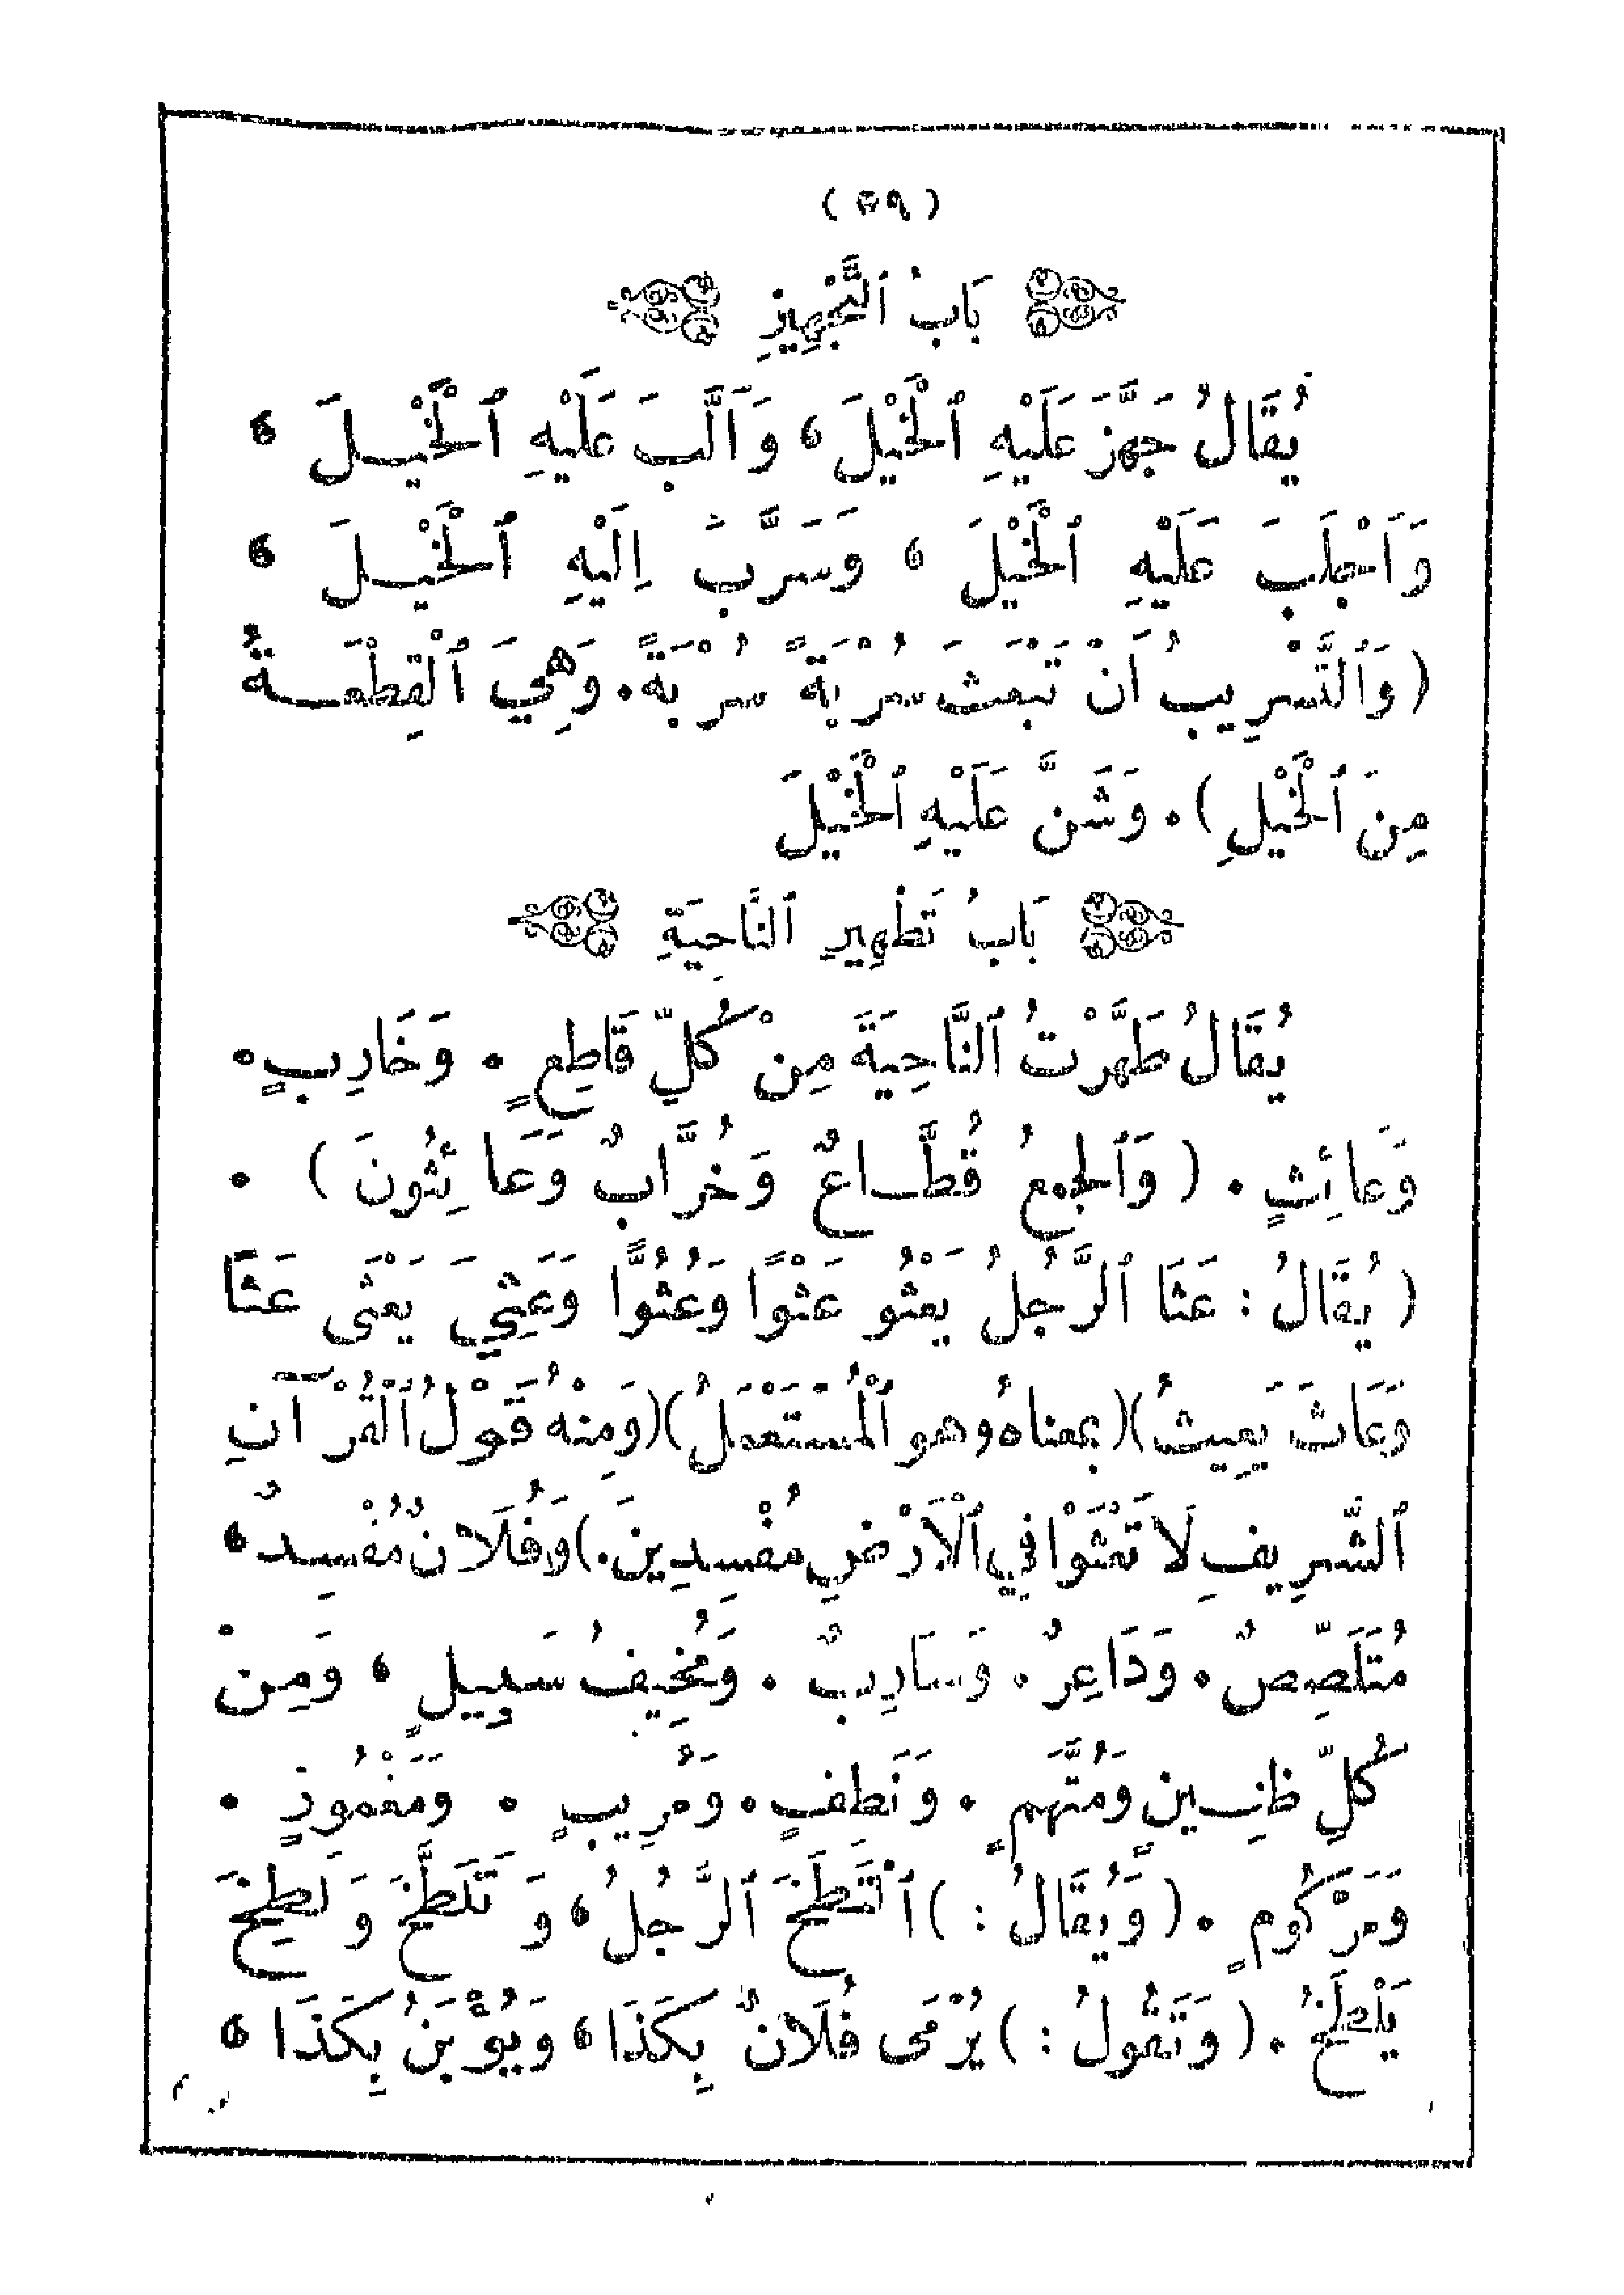 (٥٩)
بَابُ ٱلتَّجْهِيزِ
يُقَالُ جَهَّزَ عَلَيْهِ ٱلْخَيْلَ، وَأَلَّبَ عَلَيْهِ ٱلْخَيْلَ،
وَأَجْلَبَ عَلَيْهِ ٱلْخَيْلَ، وَسَرَّبَ إِلَيْهِ ٱلْخَيْلَ،
(وَٱلتَّسْرِيبُ أَنْ تَبْعَثَ سُرْبَةً سُرْبَةً. وَهِيَ ٱلْقِطْعَةُ
مِنَ ٱلْخَيْلِ). وَشَنَّ عَلَيْهِ ٱلْخَيْلَ
بَابُ تَطْهِيرِ ٱلنَّاحِيَةِ
يُقَالُ طَهَّرْتُ ٱلنَّاحِيَةَ مِنْ كُلِّ قَاطِعٍ. وَخَارِبٍ.
وَعَائِثٍ. (وَٱلْجَمْعُ قُطَّاعٌ وَخُرَّابٌ وَعَائِثُونَ).
(يُقَالُ: عَثَا ٱلرَّجُلُ يَعْثُو عَثْوًا وَعُثُوًّا وَعَثِيَ يَعْثَى عَثًا
وَعَاثَ يَعِيثُ)(بمعناهُ وهو ٱلْمُسْتَعْمَلُ)(وَمِنْهُ قَوْلُ ٱلْقُرْآنِ
ٱلشَّرِيفِ لَا تَعْثَوْا فِي ٱلْأَرْضِ مُفْسِدِينَ.)وَفُلَانٌ مُفْسِدٌ،
مُتَلَصِّصٌ. وَدَاعِرٌ. وَسَارِبٌ. وَمُخِيفُ سَبِيلٍ، وَمِنْ
كُلِّ ظَنِينٍ وَمُتَّهَمٍ. وَنَطِفٍ. وَمُرِيبٍ. وَمَغْمُوزٍ.
وَمَرْكُومٍ. (وَيُقَالُ:) ٱلْتَطَخَ ٱلرَّجُلُ، وَتَلَطَّخَ وَلَطِخَ
يَلْطَخُ. (وَتَقُولُ:) يُرْمَى فُلَانٌ بِكَذَا، وَيُؤْبَنُ بِكَذَا،